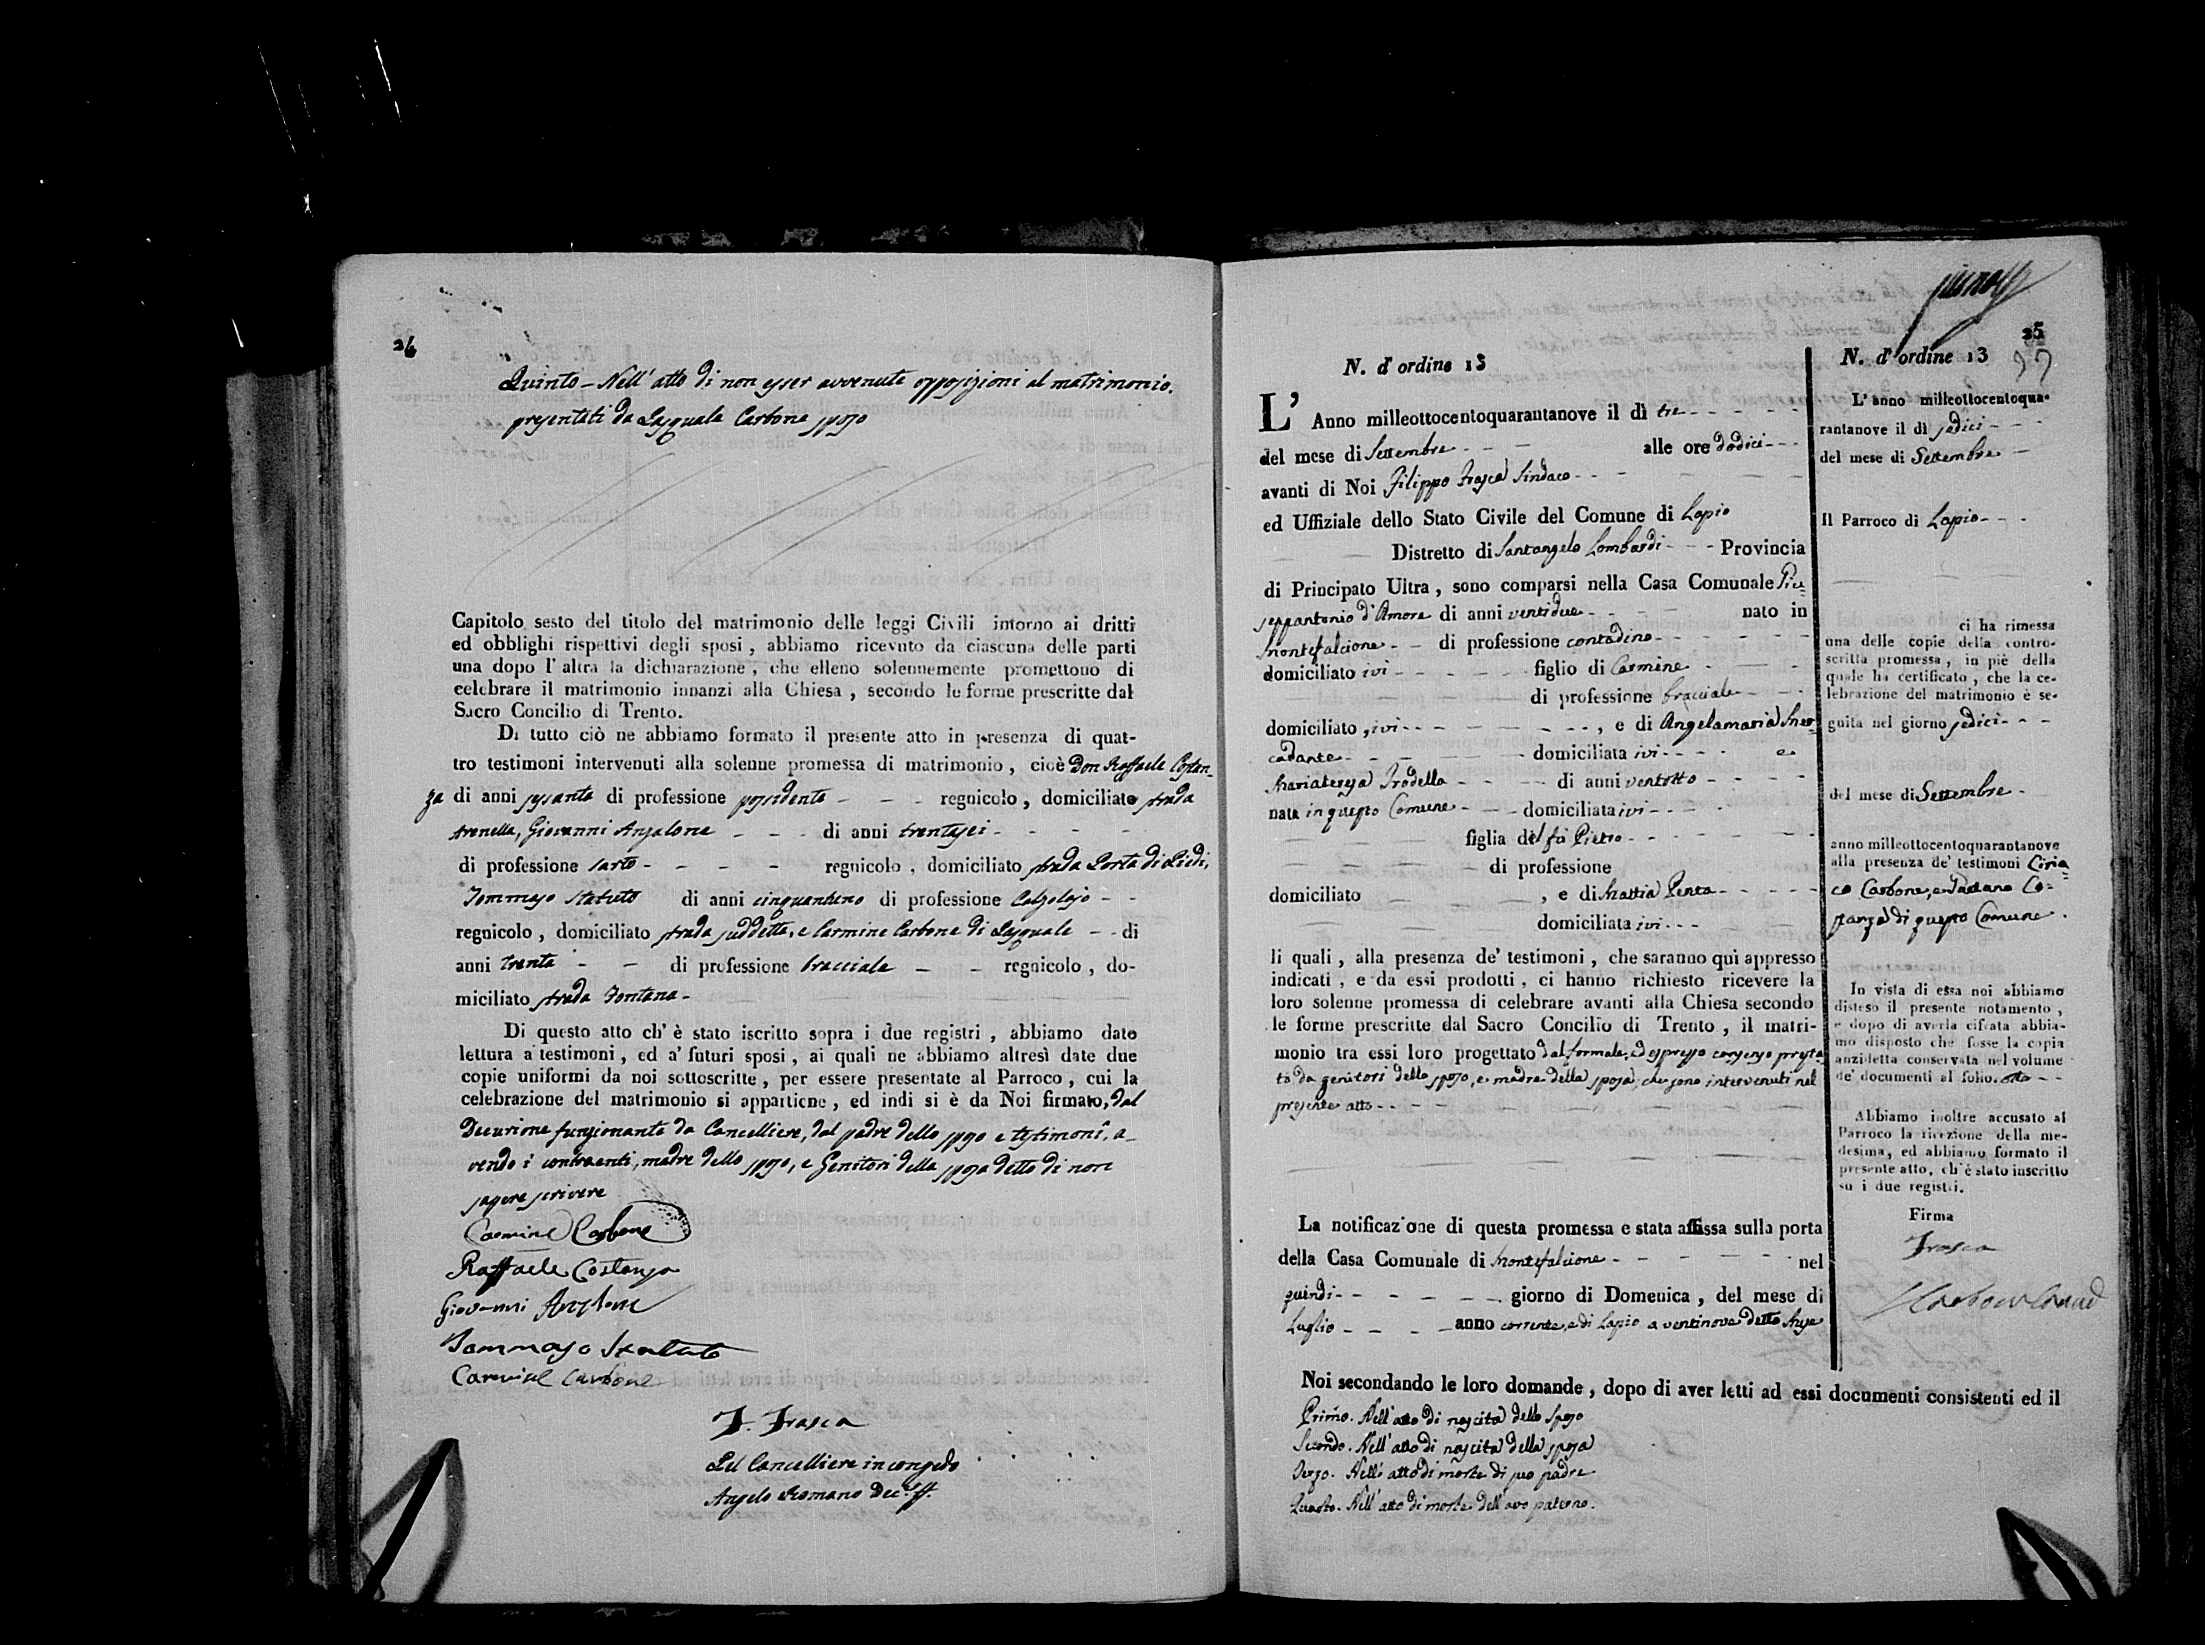 24
Quinto - Nell' atto di non esser avvenute opposizioni al matrimonio.
presentati da Pasquale Carbone sposo
Capitolo sesto del titolo del matrimonio delle leggi Civili intorno ai dritti
ed obblighi rispettivi degli sposi , abbiamo ricevuto da ciascuna delle parti
una dopo l' altra la dichiarazione , che elleno solennemente promettono di
celebrare il matrimonio innanzi alla Chiesa , secondo le forme prescritte dal
Sacro Concilio di Trento.
Di tutto ciò ne abbiamo formato il presente atto in presenza di quat-
tro testimoni intervenuti alla solenne promessa di matrimonio , cioè Don Raffaele Costan-
za di anni sessanta di professione possidente - - - regnicolo , domiciliato strada
Giovanni Anzalone - - - di anni trentasei - - - -
di professione sarto - - - - regnicolo , domiciliato strada Porta di Piedi,
Tommaso Statuto di anni cinquantuno di professione Calzolajo - -
regnicolo , domiciliato strada suddetta, e Carmine Carbone di Pasquale - - di
anni trenta - - di professione bracciale - - regnicolo , do-
miciliato strada Fontana -
Di questo atto ch' è stato iscritto sopra i due registri , abbiamo dato
lettura a' testimoni , ed a' futuri sposi , ai quali ne abbiamo altresì date due
copie uniformi da noi sottoscritte , per essere presentate al Parroco , cui la
celebrazione del matrimonio si appartiene , ed indi si è da Noi firmato, dal
Decurione funzionante da Cancelliere, dal padre dello sposo e testimoni, a-
vendo i contraenti, madre dello sposo, e Genitori della sposa detto di non
sapere scrivere
Carmine Carbone
Raffaele Costanza
Giovanni Anzalone
Tommaso Statuto
Carmine Carbone
F. Frasca
Pel Cancelliere in congedo
Angelo Romano Dec.e ff.
25
N. d' ordine 13
L' Anno milleottocentoquarantanove il dì tre - - - - -
del mese di Settembre - - - alle ore dodici - - -
avanti di Noi Filippo Frasca Sindaco - - -
ed Uffiziale dello Stato Civile del Comune di Lapio
Distretto di Santangelo Lombardi - - - Provincia
di Principato Ultra , sono comparsi nella Casa Comunale Giu=
seppantonio d'Amore di anni ventidue - - - - nato in
Montefalcione - - di professione contadino - - - - -
domiciliato ivi - - - - - figlio di Carmine - - -
di professione bracciale - - -
domiciliato , ivi - - - - - - - - , e di Angelamaria
- - - - - domiciliata ivi - - - - e
Mariateresa Trodella - - - - di anni ventotto - - - -
nata in questo Comune - - - domiciliata ivi - - -
figlia del fù Pietro - - - - - - -
di professione
domiciliato , e di Mattia Penta - - - - -
domiciliata ivi - - -
li quali , alla presenza de' testimoni , che saranno qui appresso
indicati , e da essi prodotti , ci hanno richiesto ricevere la
loro solenne promessa di celebrare avanti alla Chiesa secondo
le forme prescritte dal Sacro Concilio di Trento , il matri-
monio tra essi loro progettato dal formale, ed espresso consenso presta
to da genitori dello sposo, e madre della sposa, che sono intervenuti nel
presente atto - - -
La notificazione di questa promessa e stata affissa sulla porta
della Casa Comunale di Montefalcione - - - - - nel
quindi - - - - - - giorno di Domenica , del mese di
Luglio - - - - anno corrente, e di Lapio a ventinove detto Mese
Noi secondando le loro domande , dopo di aver letti ad essi documenti consistenti ed il
Primo. Nell' atto di nascita dello sposo
Secondo. Nell' atto di nascita della sposa
Terzo. Nell' atto di morte di suo padre
Quarto. Nell' atto di morte dell' avo paterno.
N. d' ordine 13
L' anno milleottocentoqua-
rantanove il dì sedici - - -
del mese di Settembre -
Il Parroco di Lapio - - -
ci ha rimessa
una delle copie della contro-
scritta promessa , in piè della
quale ha certificato , che la ce-
lebrazione del matrimonio è se-
guita nel giorno sedici - - -
del mese di Settembre -
anno milleottocentoquarantanove
alla presenza de' testimoni Ciria=
co Carbone, e Co=
stanza di questo Comune .
In vista di essa noi abbiamo
disteso il presente notamento ,
e dopo di averla cifrata abbia-
mo disposto che fosse la copia
anzidetta conservata nel volume
de' documenti al folio. otto - -
Abbiamo inoltre accusato al
Parroco la ricezione della me-
desima, ed abbiamo formato il
presente atto, ch' è stato inscritto
su i due registri.
Firma
Frasca